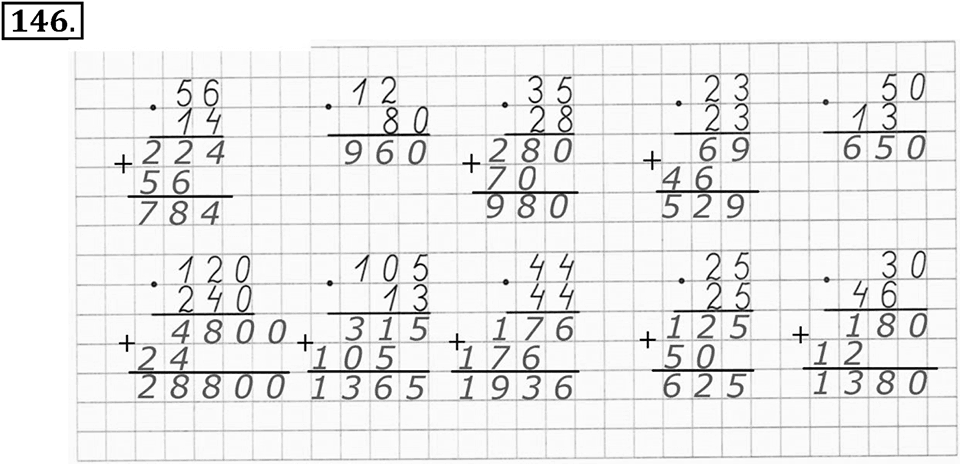 146.
56 12 35 23 50
· 14 · 80 · 28 · 23 · 13
+ 224 960 + 280 + 69 650
56 70 46
784 980 529
120 105 44 25 30
· 240 · 13 · 44 · 25 · 46
+ 4800 + 315 + 176 + 125 + 180
24 105 176 50 12
28800 1365 1936 625 1380